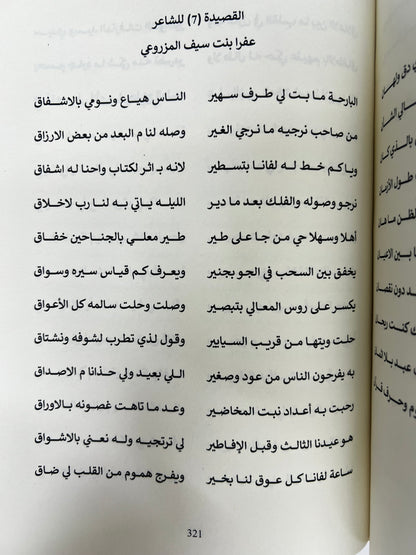 القصيدة (7) للشاعر
عفرا بنت سيف المزروعي
البارحة ما بت لي طرف سهير الناس هياع ونومي بالاشفاق
من صاحب نرجيه ما نرجي الغير وصله لنا م البعد من بعض الارزاق
ويا كم خط له لفانا بتسطير لانه بـ اثر لكتاب واحنا له اشفاق
نرجو وصوله والفلك بعد ما دير الليله ياتي به لنا رب لاخلاق
أهلا وسهلا حي من جا على طير طير معلي بالجناحين خفاق
يخفق بين السحب في الجو بجنير ويعرف كم قياس سيره وسواق
يكسر على روس المعالي بتبصير وصلت وحلت سالمه كل الأعواق
حلت ويتها من قريب السبايير وقول لذي تطرب لشوفه ونشتاق
به يفرحون الناس من عود وصغير اللي بعيد ولي حذانا م الاصداق
رحبت به أعداد نبت المخاضير وعد ما تاهت غصونه بالاوراق
هو عيدنا الثالث وقبل الإفاطير لي ترتجيه وله نعني بالاشواق
ساعة لفانا كل عوق لنا بخير ويفرج هموم من القلب لي ضاق
321